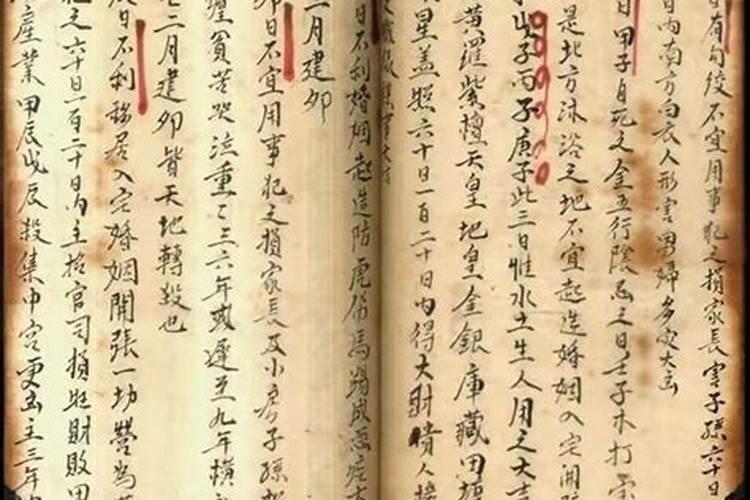 日有勾绞不宜用事犯之損家長害子孫六十日
日内南方白衣人形害男婦多灾大凶
日甲子自死之金五行陰忌之日壬子木打宝
是北方沐浴之地不宜起造婚姻入宅開
子丙子庚子此三日惟水土生人用之大吉
黄羅紫檀天皇地皇金銀庫藏田塘
星盖照六十日一百二十日内得大財贵人接
日不利婚姻起造防虎傷馬踢成惡症大
二月建卯
卯日不宜用事犯之損家長及小房子孫
纏貧苦哭泣重重三六年或遲至九年横
二月建卯皆天地轉殺也
日不利移居入宅婚姻開張一切營為
犯之六十日一百二十日内主招官司損畜財敗田
産業甲辰戊辰殺集中宫更凶主三年